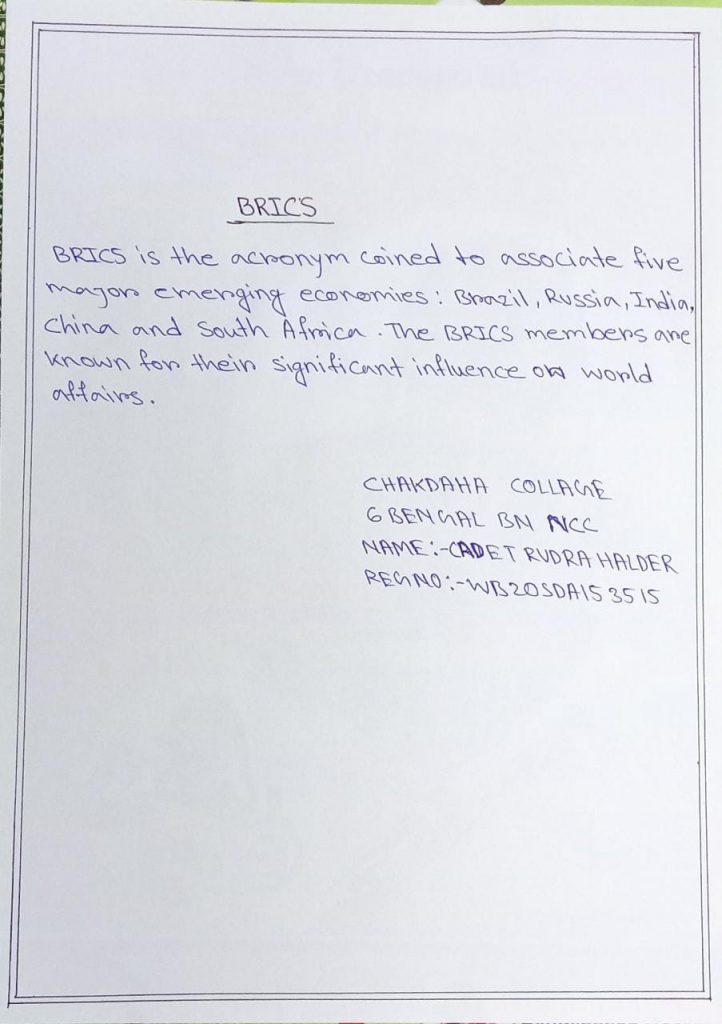 BRICS
BRICS is the acronym coined to associate five
major emerging economies: Brazil, Russia, India,
China and South Africa. The BRICS members are
known for their significant influence on world
affairs.
CHAKDAHA COLLAGE
6 BENGAL BN NCC
NAME:-CADET RUDRA HALDER
REGNO:-WB20SDA153515